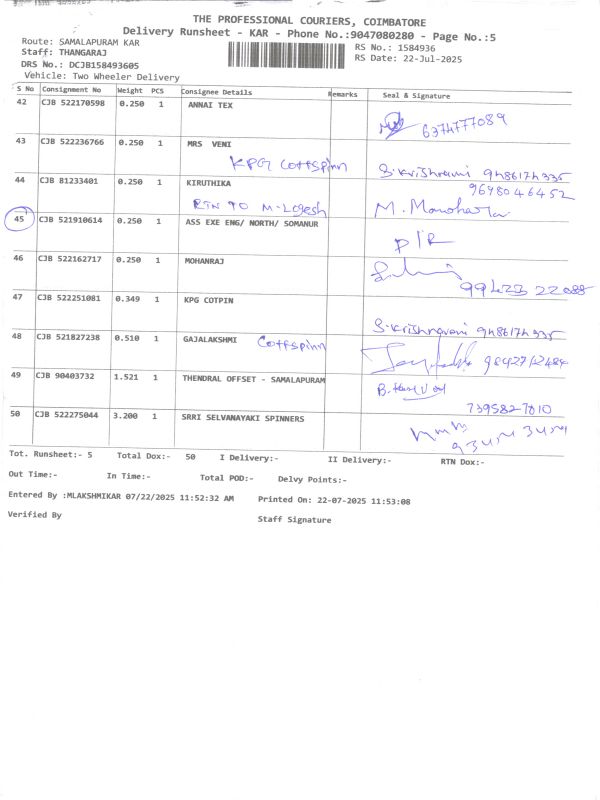 THE PROFESSIONAL COURIERS, COIMBATORE
Delivery Runsheet - KAR - Phone No.:9047080280 - Page No.:5
Route: SAMALAPURAM KAR
RS No.: 1584936
Staff: THANGARAJ
RS Date: 22-Jul-2025
DRS No.: DCJB158493605
Vehicle: Two Wheeler Delivery
S No Consignment No Weight PCS Consignee Details Remarks Seal & Signature
42 CJB 522170598 0.250 1 ANNAI TEX
6374777089
43 CJB 522236766 0.250 1 MRS VENI
KPG Cottspinn S.Krishnaveni 9486174335
44 CJB 81233401 0.250 1 KIRUTHIKA 9698046452
RTN TO M-Logesh M. Manohara
45 CJB 521910614 0.250 1 ASS EXE ENG/ NORTH/ SOMANUR
D/R
46 CJB 522162717 0.250 1 MOHANRAJ
99423 22088
47 CJB 522251081 0.349 1 KPG COTPIN
S.Krishnaveni 9486174335
48 CJB 521827238 0.510 1 GAJALAKSHMI Cottspinn
49 CJB 90403732 1.521 1 THENDRAL OFFSET - SAMALAPURAM
7395827010
50 CJB 522275044 3.200 1 SRRI SELVANAYAKI SPINNERS
Tot. Runsheet:- 5 Total Dox:- 50 I Delivery:- II Delivery:- RTN Dox:-
Out Time:- In Time:- Total POD:- Delvy Points:-
Entered By :MLAKSHMIKAR 07/22/2025 11:52:32 AM Printed On: 22-07-2025 11:53:08
Verified By
Staff Signature